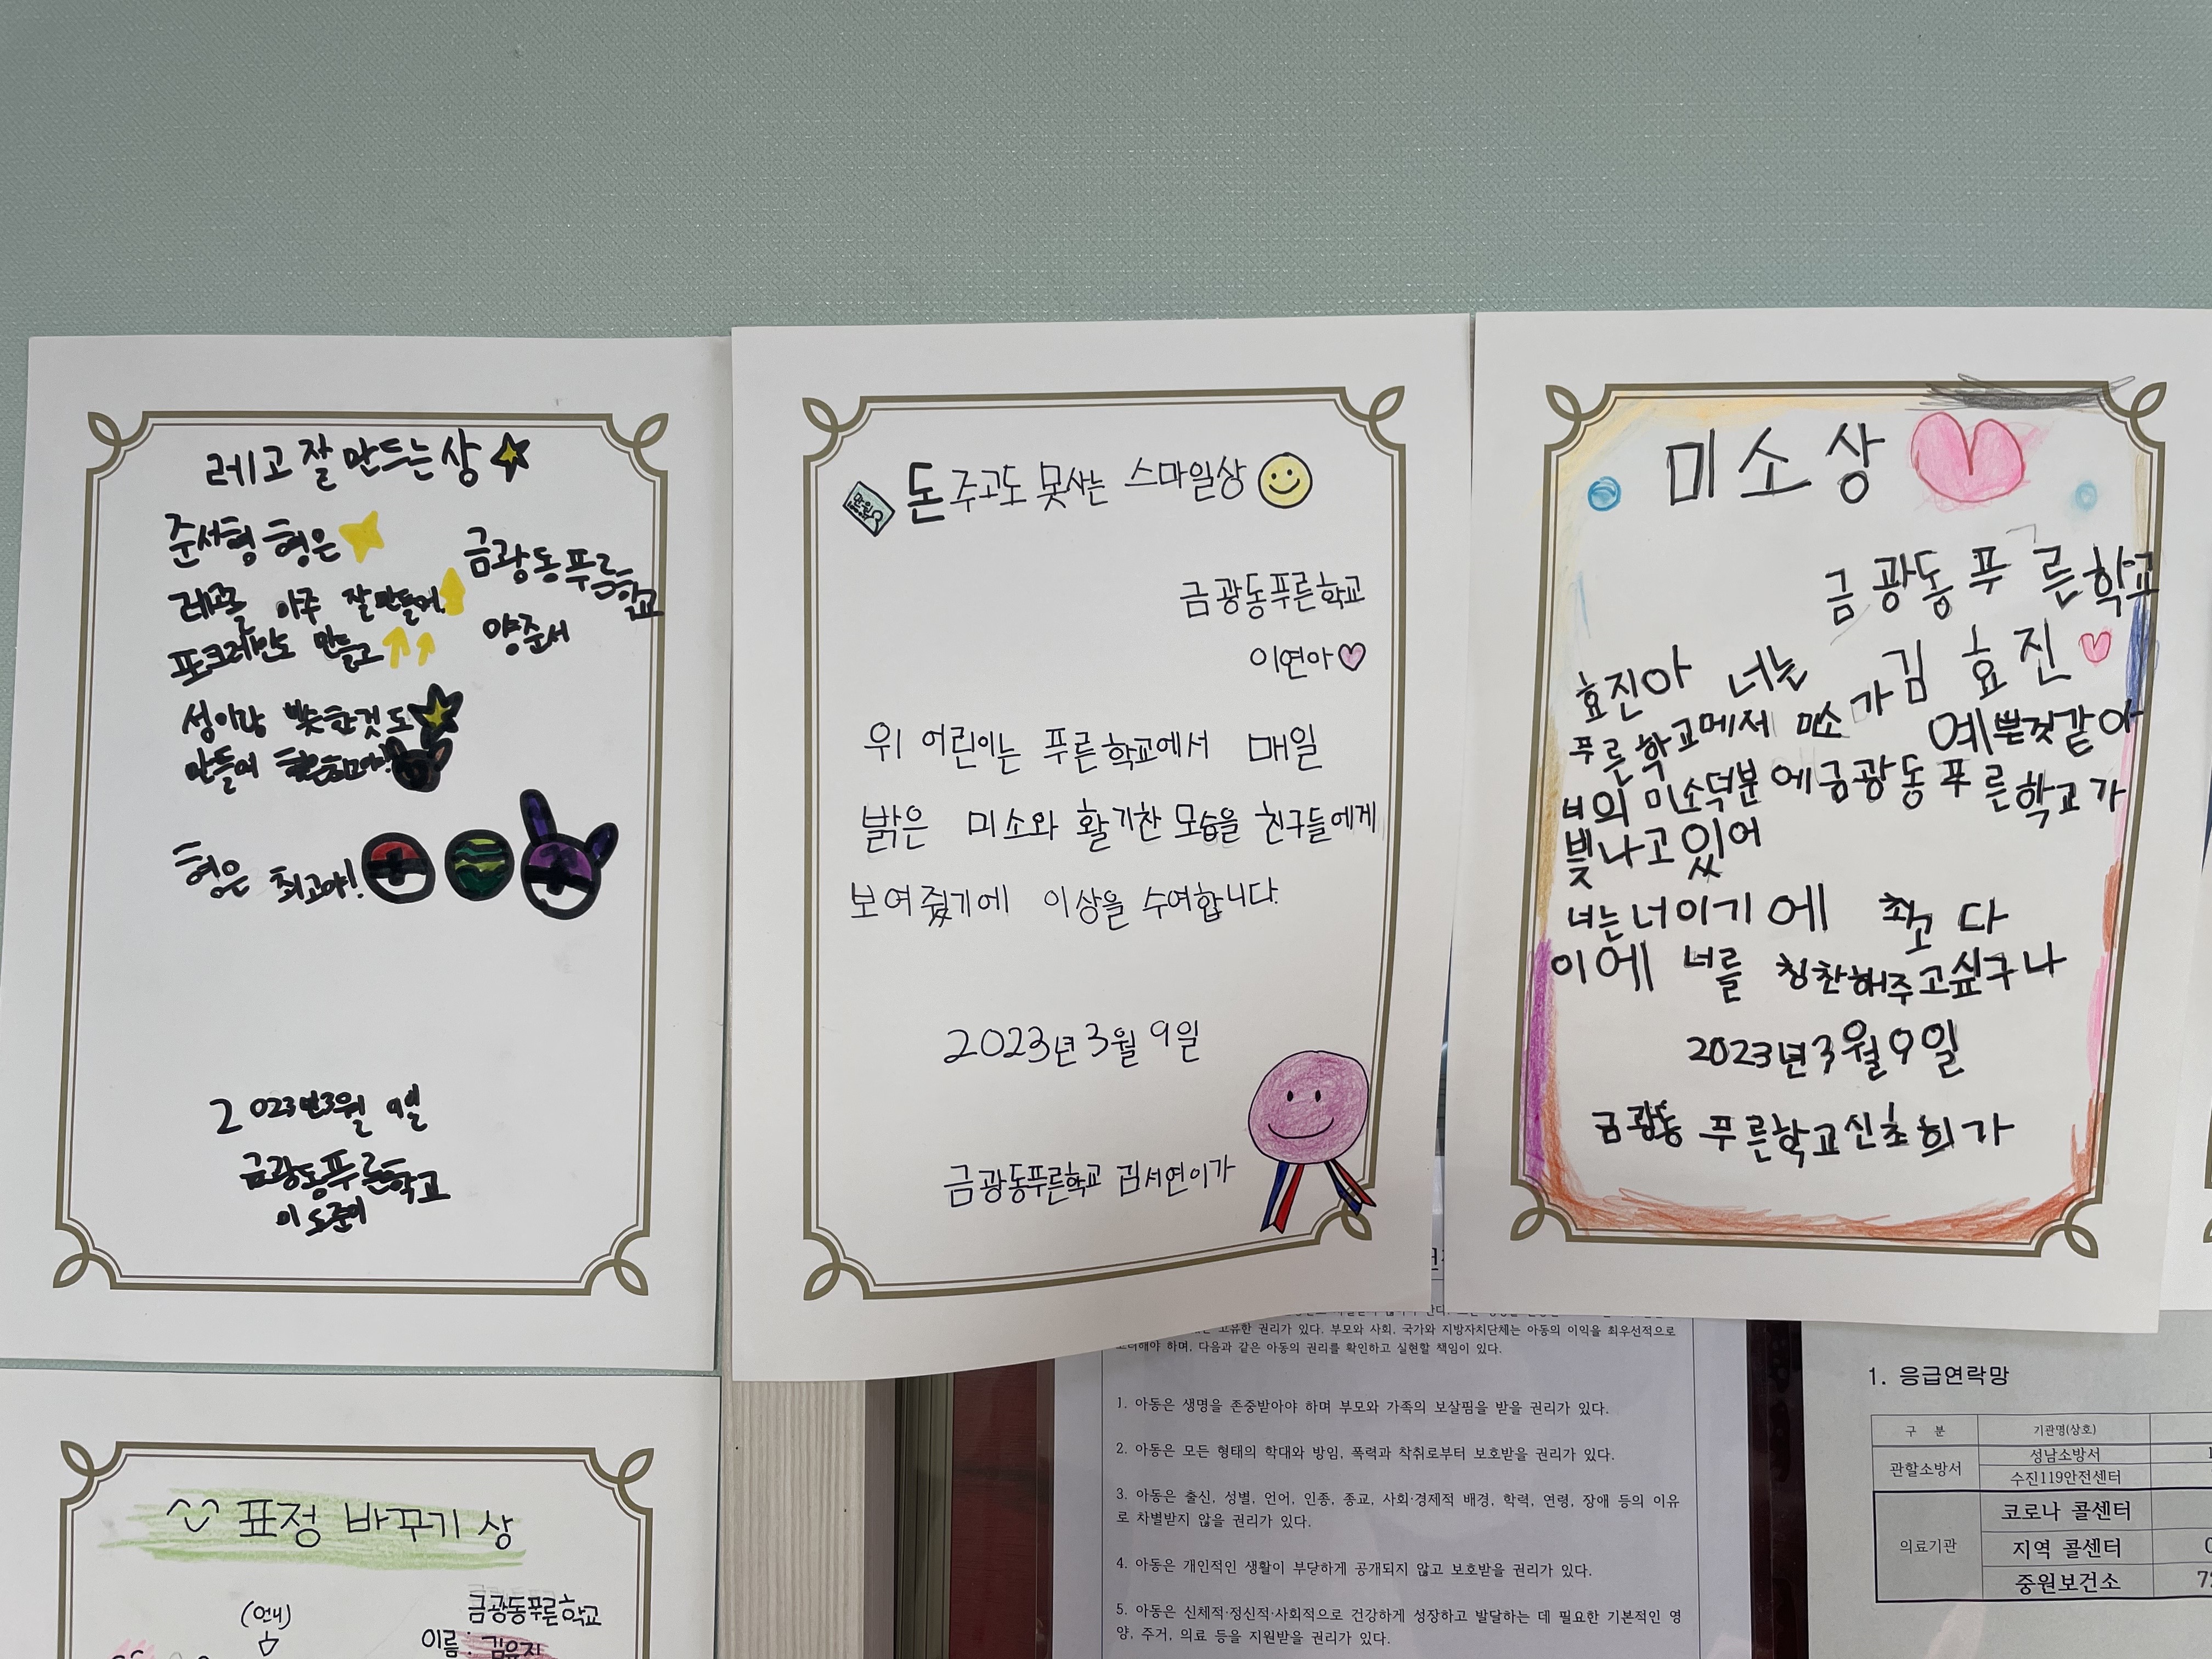 레고 잘 만드는 상
준서형 형은
금광동푸른학교
양준서
레고를 아주 잘만들어
포크레인도 만들고
성이랑 비슷한것도
만들어 형은최고야!
형은 최고야!
2023년3월 9일
금광동푸른학교
이도준이
만원
돈 주고도 못사는 스마일상
금광동푸른학교
이연아
위 어린이는 푸른학교에서 매일
밝은 미소와 활기찬 모습을 친구들에게
보여줬기에 이상을 수여합니다.
2023년 3월 9일
금광동푸른학교 김서연이가
미소상
금광동푸른학교
김효진
효진아 너는
푸른학교에서 미소가 예쁜것같아
너의 미소덕분에금광동푸른학교가
빛나고있어
너는너이기에 최고다
이에 너를 칭찬해주고싶구나
2023년3월9일
금광동 푸른학교신초희가
표정 바꾸기 상
(언니)
금광동푸른학교
이름: 김유진
고유한 권리가 있다. 부모와 사회, 국가와 지방자치단체는 아동의 이익을 최우선적으로
고려해야 하며, 다음과 같은 아동의 권리를 확인하고 실현할 책임이 있다.
1. 아동은 생명을 존중받아야 하며 부모와 가족의 보살핌을 받을 권리가 있다.
2. 아동은 모든 형태의 학대와 방임, 폭력과 착취로부터 보호받을 권리가 있다.
3. 아동은 출신, 성별, 언어, 인종, 종교, 사회·경제적 배경, 학력, 연령, 장애 등의 이유
로 차별받지 않을 권리가 있다.
4. 아동은 개인적인 생활이 부당하게 공개되지 않고 보호받을 권리가 있다.
5. 아동은 신체적·정신적·사회적으로 건강하게 성장하고 발달하는 데 필요한 기본적인 영
양, 주거, 의료 등을 지원받을 권리가 있다.
1. 응급연락망
구 분 기관명(상호)
관할소방서 성남소방서
수진119안전센터
의료기관 코로나 콜센터
지역 콜센터
중원보건소